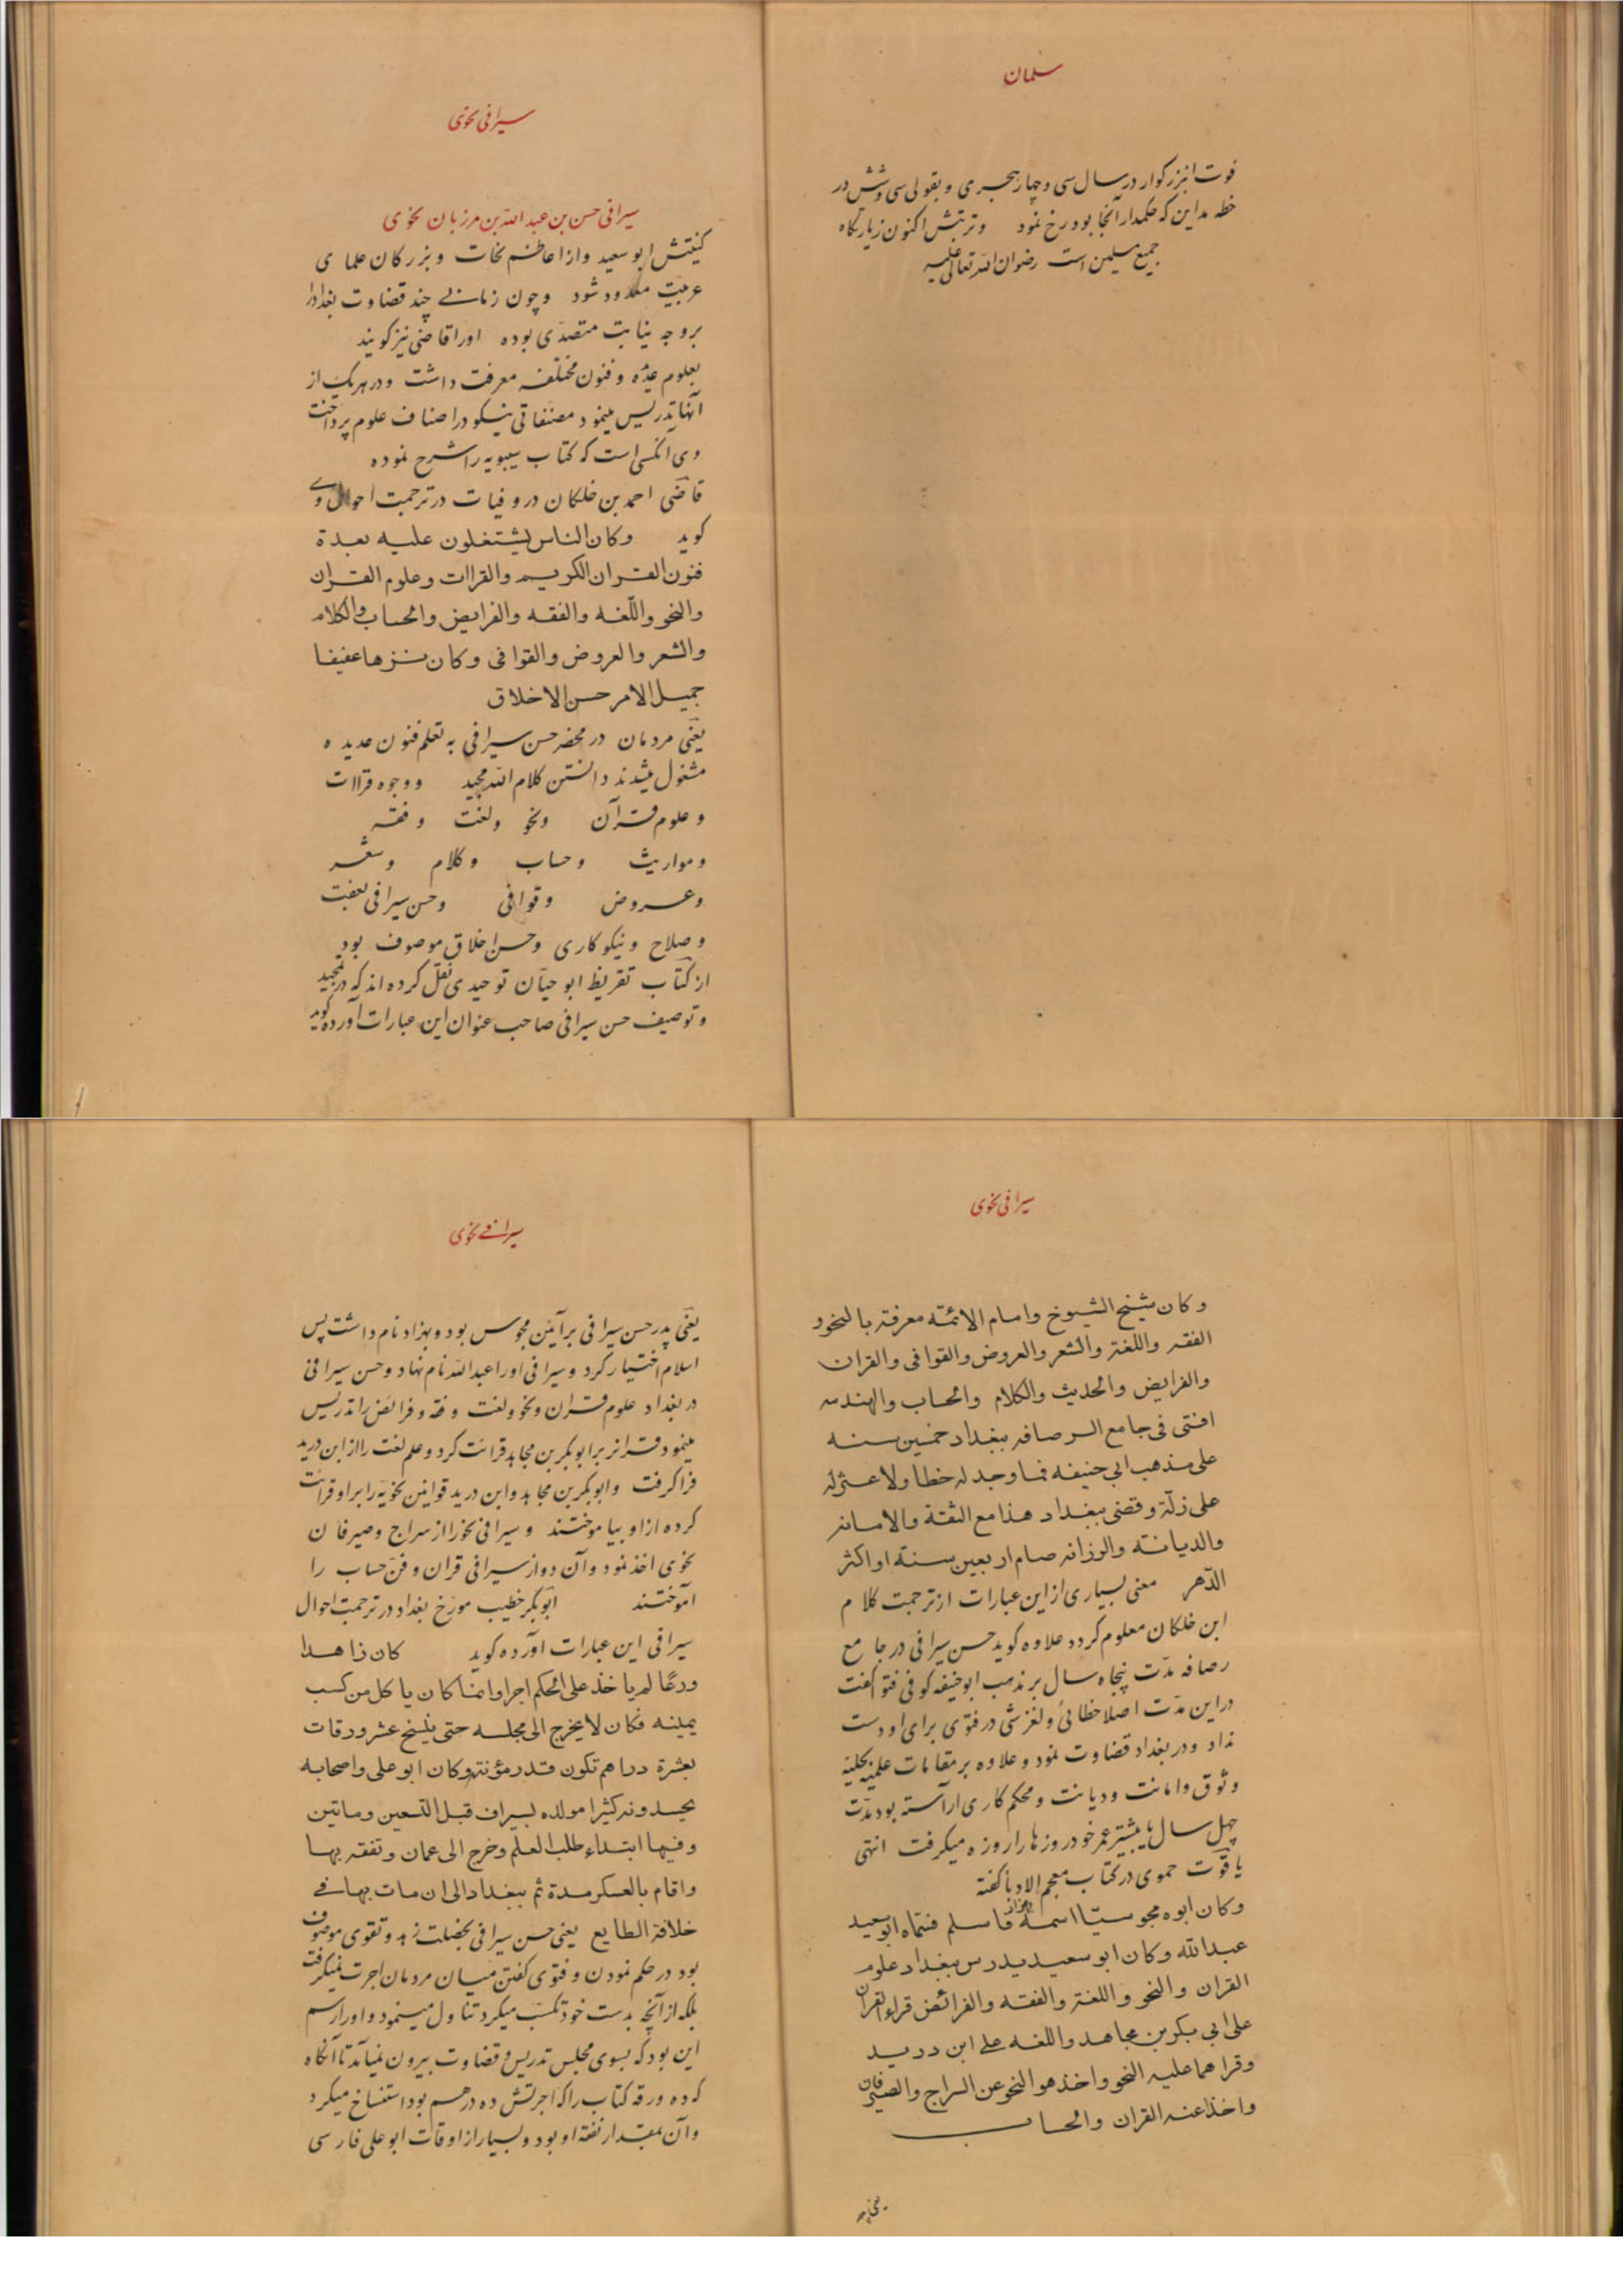 سلمان
فوت انبزرکوار در سال سی و چهار هجری و بقولی سی و شش در
خطه مداین که حکمدار آنجا بود رخ نمود و تربتش اکنون زیارتکاه
جمیع مسلمین است رضوان الله تعالی علیه
سیرافی نحوی
سیرافی حسن بن عبد الله بن مرزبان نحوی
کنیتش ابو سعید و از اعاظم نحات و بزرکان علمای
عربیت معدود شود و چون زمانی چند قضاوت بغداد را
بر وجه نیابت متصدّی بوده او را قاضی نیز کویند
بعلوم عدّه و فنون مختلفه معرفت داشت و در هر یک از
آنها تدریس مینمود مصنفاتی نیکو در اصناف علوم پرداخت
وی آنکسی است که کتاب سیبویه را شرح نموده
قاضی احمد بن خلکان در وفیات در ترجمت احوال وی
کوید وکان الناس یشتغلون علیه بعدة
فنون القران الکریم والقراات وعلوم القران
والنحو واللّغه والفقه والفرایض والحساب والکلام
والشعر والعروض والقوافی وکان نزها عفیفا
جمیل الامر حسن الاخلاق
یعنی مردمان در محضر حسن سیرافی به تعلم فنون عدیده
مشغول میشدند دانستن کلام الله مجید و وجوه قراات
و علوم قرآن و نحو و لغت و فقه
و مواریث و حساب و کلام و شعر
و عروض و قوافی و حسن سیرافی بعفت
و صلاح و نیکو کاری و حسن اخلاق موصوف بود
از کتاب تقریظ ابو حیّان توحیدی نقل کرده اند که در تمجید
و توصیف حسن سیرافی صاحب عنوان این عبارات آورده کوید
سیرافی نحوی
وکان شیخ الشیوخ وامام الائمّه معرفة بالنحو و
الفقه واللغة والشعر والعروض والقوافی والقران
والفرایض والحدیث والکلام والحساب والهندسه
افتی فی جامع الرصافه ببغداد خمسین سنه
علی مذهب ابی حنیفه فما وجد له خطا ولا عثر له
علی زلّة وقضی ببغداد هذا مع الثقة والامانه
والدیانه والرزانه صام اربعین سنة او اکثر
الدّهر معنی بسیاری از این عبارات از ترجمت کلام
ابن خلکان معلوم کردد علاوه کوید حسن سیرافی در جامع
رصافه مدّت پنجاه سال بر مذهب ابو حنیفه کوفی فتو کفت
در این مدّت اصلا خطائی و لغزشی در فتوی برای او دست
نداد و در بغداد قضاوت نمود و علاوه بر مقامات علمیه بحلیه
وثوق و امانت و دیانت و محکم کاری آراسته بود مدّت
چهل سال یا بیشتر عمر خود روزها را روزه میکرفت انتهی
یاقوت حموی در کتاب معجم الادبا کفته
وکان ابوه مجوسیّا اسمه بهزاد فاسلم فسمّاه ابو سعید
عبد الله وکان ابو سعید یدرس ببغداد علوم
القران والنحو واللغة والفقه والفرائض قراء القران
علی ابی بکر بن مجاهد واللغه علی ابن درید
وقراهما علیه النحو واخذ هو النحو عن السراج والصیرفان
واخذا عنه القران والحساب
سیرافی نحوی
یعنی پدر حسن سیرافی بر آئین مجوس بود و بهزاد نام داشت پس
اسلام اختیار کرد و سیرافی او را عبد الله نام نهاد و حسن سیرافی
در بغداد علوم قران و نحو و لغت و فقه و فرائض را تدریس
مینمود قرانرا بر ابو بکر بن مجاهد قرائت کرد و علم لغت را از ابن درید
فرا کرفت و ابو بکر بن مجاهد و ابن درید قوانین نحویّه را بر او قرائت
کرده از او بیاموختند و سیرافی نحو را از سراج و صیرفان
نحوی اخذ نمود و آن دو از سیرافی قران و فنّ حساب را
آموختند ابو بکر خطیب مورخ بغداد در ترجمت احوال
سیرافی این عبارات آورده کوید کان زاهدا
ورعًا لم یاخذ علی الحکم اجرا وانما کان یاکل من کسب
یمینه فکان لا یخرج الی مجلسه حتی ینسخ عشر ورقات
بعشرة دراهم تکون قدر مؤنته وکان ابو علی واصحابه
یحسدونه کثیرا مولده بسیراف قبل التسعین وماتین
وفیها ابتداء طلب العلم وخرج الی عمان وتفقه بها
واقام بالعسکر مدة ثم ببغداد الی ان مات بها فی
خلافة الطایع یعنی حسن سیرافی بخصلت زهد و تقوی موصوف
بود در حکم نمودن و فتوی کفتن میان مردمان اجرت نمیکرفت
بلکه از آنچه بدست خود تکسّب میکرد تناول مینمود و او را رسم
این بود که بسوی مجلس تدریس و قضاوت بیرون نمیآمد تا آنکاه
که ده ورقه کتاب را که اجرتش ده درهم بود استنساخ میکرد
و آن بمقدار نفقه او بود و بسیار از اوقات ابو علی فارسی